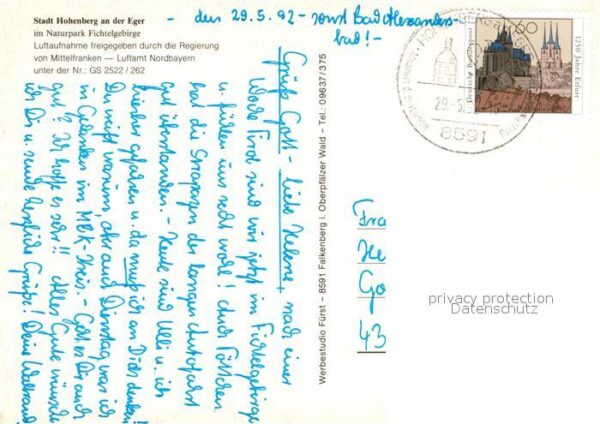 Stadt Hohenberg an der Eger
im Naturpark Fichtelgebirge
Luftaufnahme freigegeben durch die Regierung
von Mittelfranken — Luftamt Nordbayern
unter der Nr.: GS 2522 / 262
- den 29.5.92 - sonst Bad Alexanders-
bad! -
Grüß Gott - liebe Helene, nach einer
Woche sind wir jetzt im Fichtelgebirge
u. fühlen uns sehr wohl! Auch
hat die Strapazen der langen Autofahrt
gut überstanden. - Heute sind Ulli u. ich
hierher gefahren u. da muß ich an Dich denken!
Du weißt warum, aber auch Dienstag war ich
in Gedanken im MBK-Kreis. - Geht es Dir auch
gut? Ich hoffe es sehr!! Alles Gute wünsche
ich Dir u. sende herzliche Grüße! Deine Waltraud
Werbestudio Fürst — 8591 Falkenberg i. Oberpfälzer Wald — Tel.: 09637/375
60
Deutsche Bundespost
1250 Jahre Erfurt
29.-5.
8591
Fra
He
Go
43
privacy protection
Datenschutz